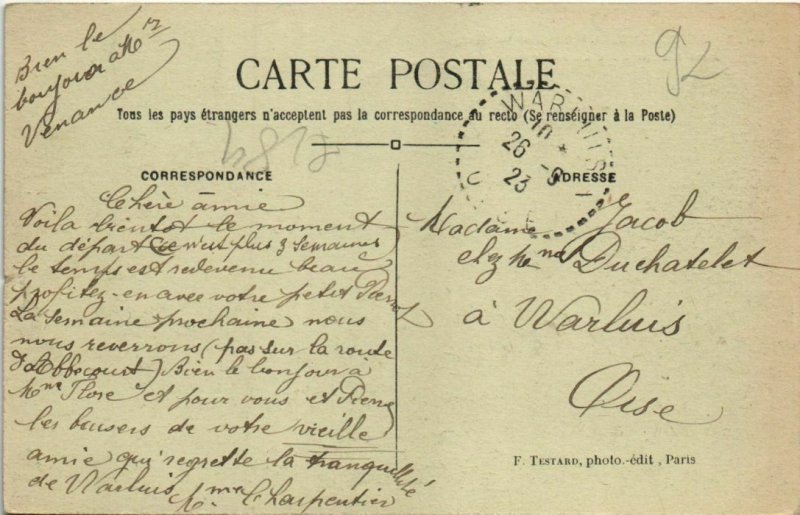 Bien le
bonjour à Mr
Venance
CARTE POSTALE
Tous les pays étrangers n'acceptent pas la correspondance au recto (Se renseigner à la Poste)
92
CORRESPONDANCE
ADRESSE
WARLUIS
10
26 -9
23
OISE
Chère amie
Voila bientot le moment
du départ ce n'est plus 3 semaines
le temps est redevenu beau
profitez-en avec votre petit Pierre
La semaine prochaine nous
nous reverrons (pas sur la route
d'Abbecourt) Bien le bonjour à
Mme Flore et pour vous et Pierre
les baisers de votre vieille
amie qui regrette la tranquillité
de Warluis Mme Charpentier
Madame Jacob
chez Mme Duchatelet
à Warluis
Oise
F. TESTARD, photo.-édit , Paris